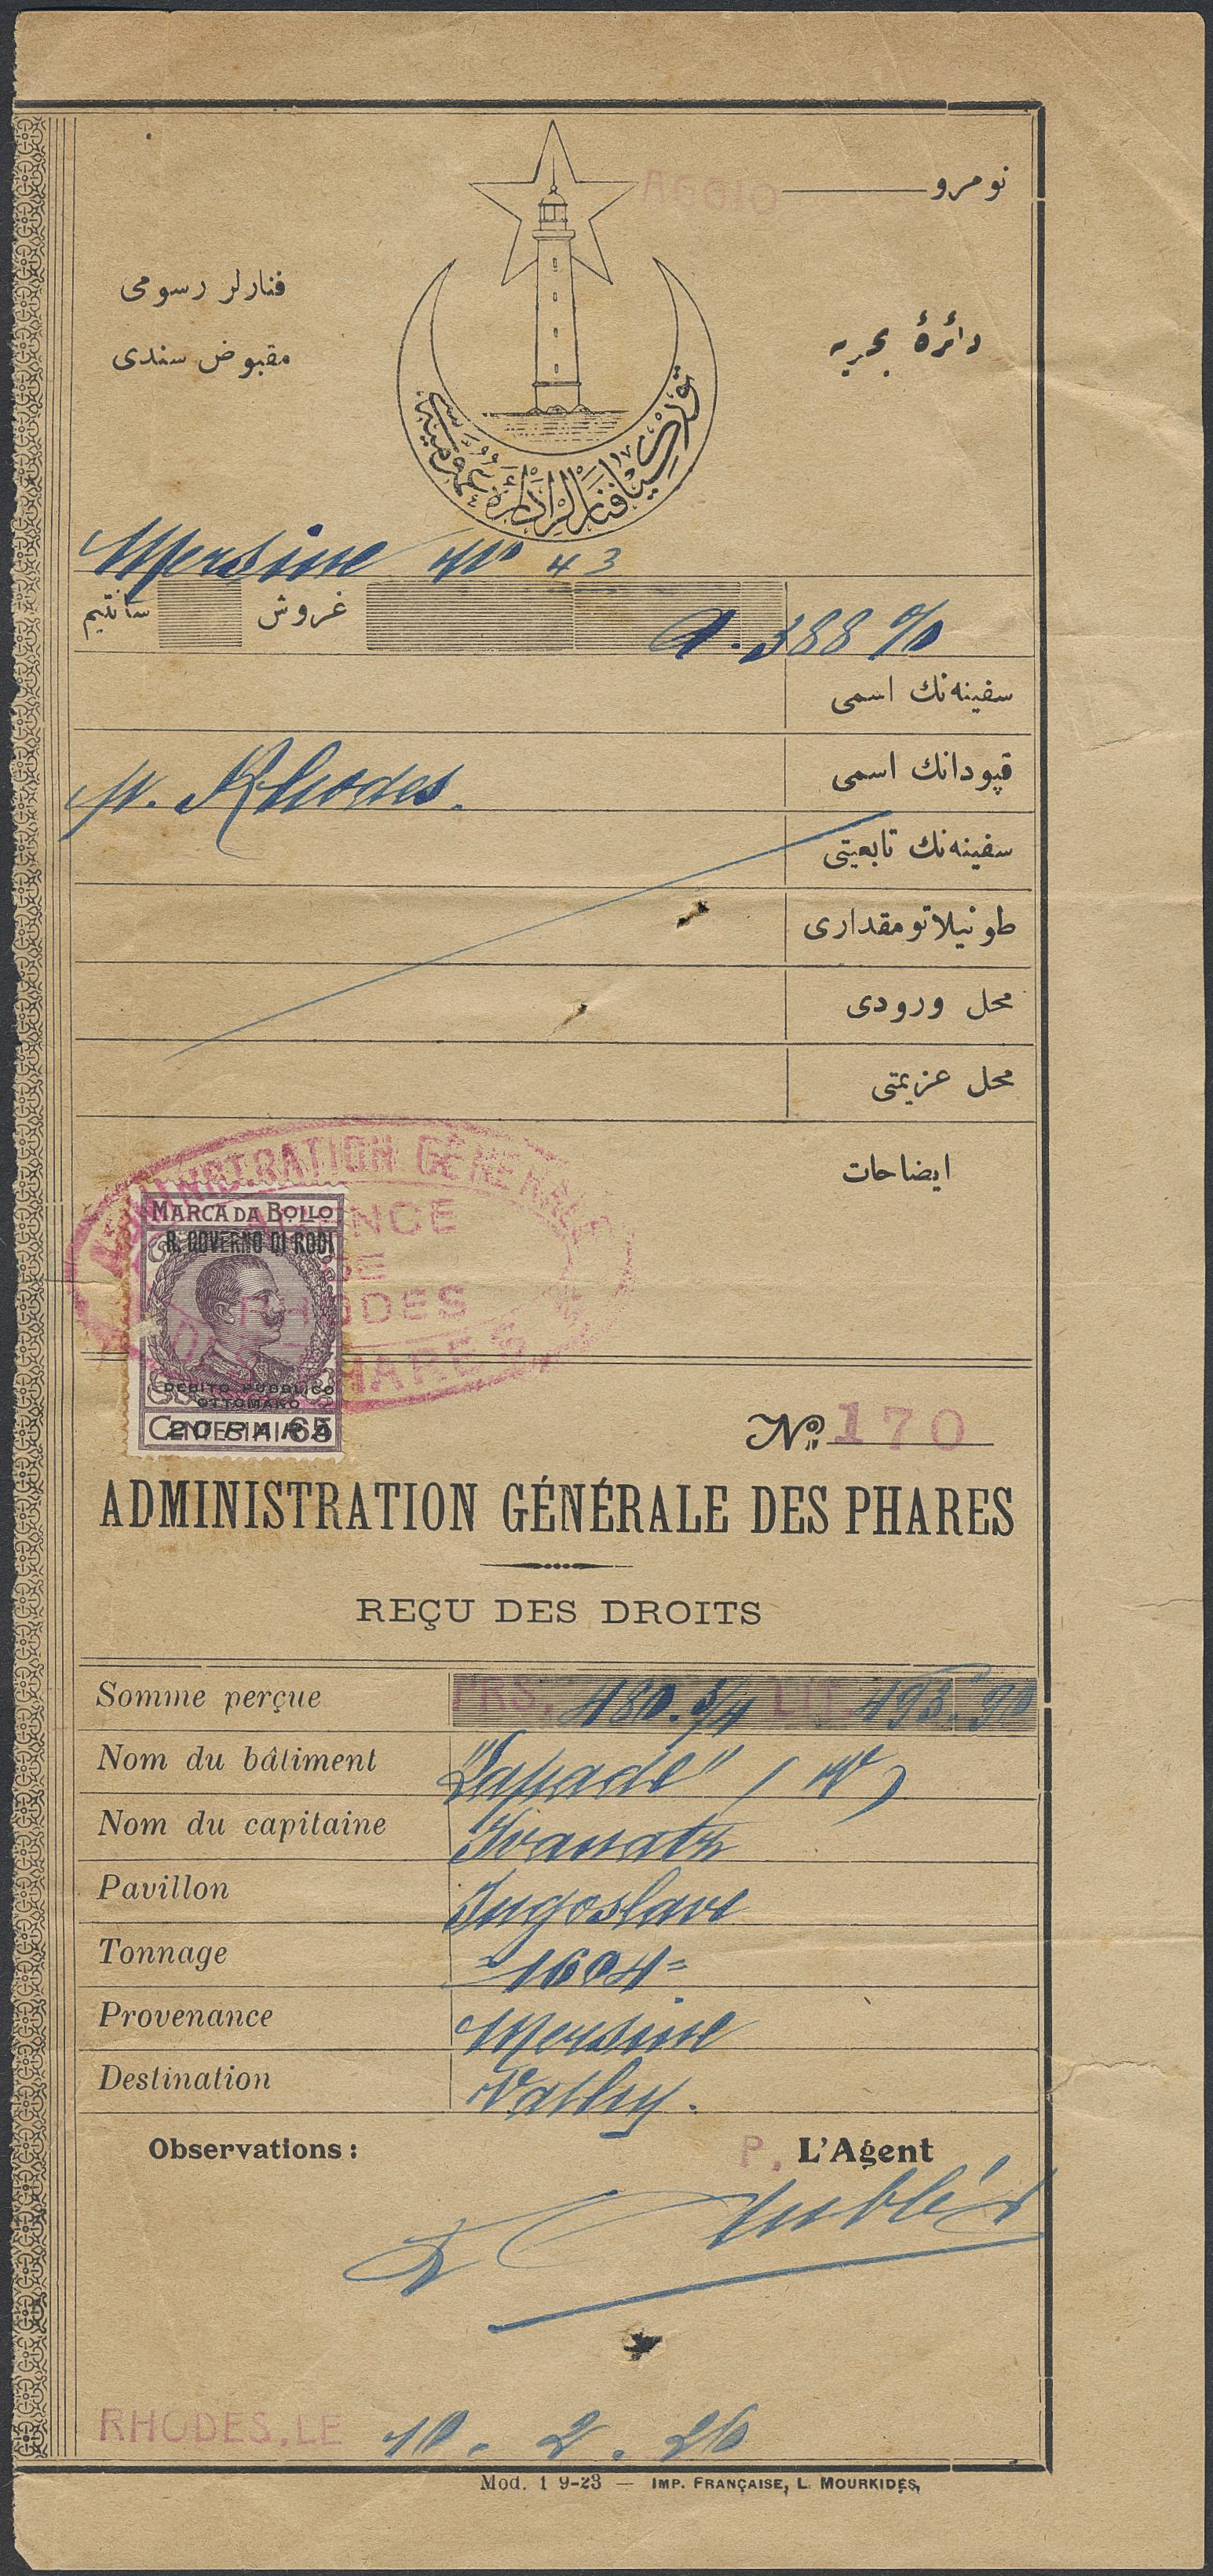 AGGIO
نومرو
فنارلر رسومی
مقبوض سندی
دائرهٔ بحریه
Mersine No 43
سانتیم
غروش
388 %
سفینه‌نك اسمی
قپودانك اسمی
p. Rhodes.
سفینه‌نك تابعیتی
طونیلاتو مقداری
محل ورودی
محل عزیمتی
ايضاحات
ADMINISTRATION GÉNÉRALE
AGENCE
DE
RHODES
DES PHARES
MARCA DA BOLLO
R. GOVERNO DI RODI
DEBITO PUBBLICO
OTTOMANO
CENTESIMI 65
20 PARA
No. 170
ADMINISTRATION GÉNÉRALE DES PHARES
REÇU DES DROITS
Somme perçue FRS. 480.3/4 LIT. 493.90
Nom du bâtiment "Lapade" (V)
Nom du capitaine
Pavillon Jugoslave
Tonnage =1604=
Provenance Mersine
Destination Vathy.
Observations: P. L'Agent
RHODES, LE 10. 2. 26
Mod. 1 9-23 — IMP. FRANÇAISE, L. MOURKIDÈS,